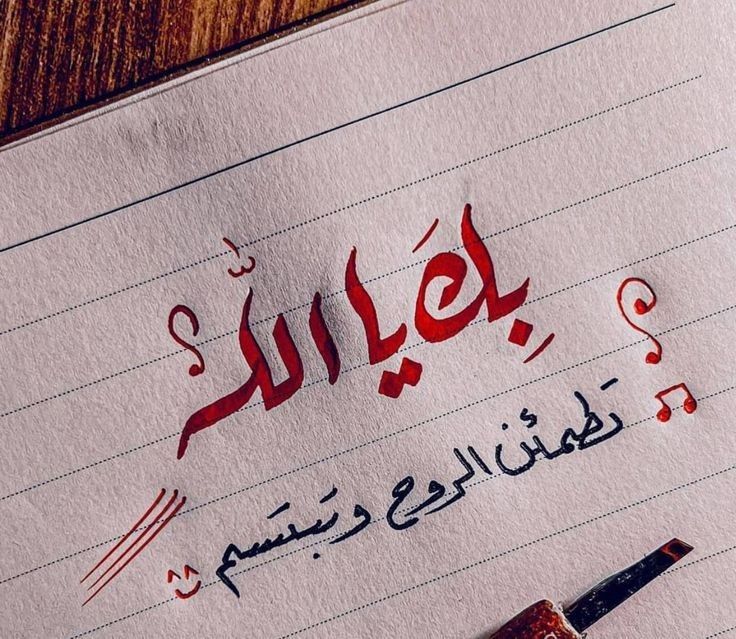 بِكَ يا اللّٰه
تَطمئن الروح وتَبتَسم